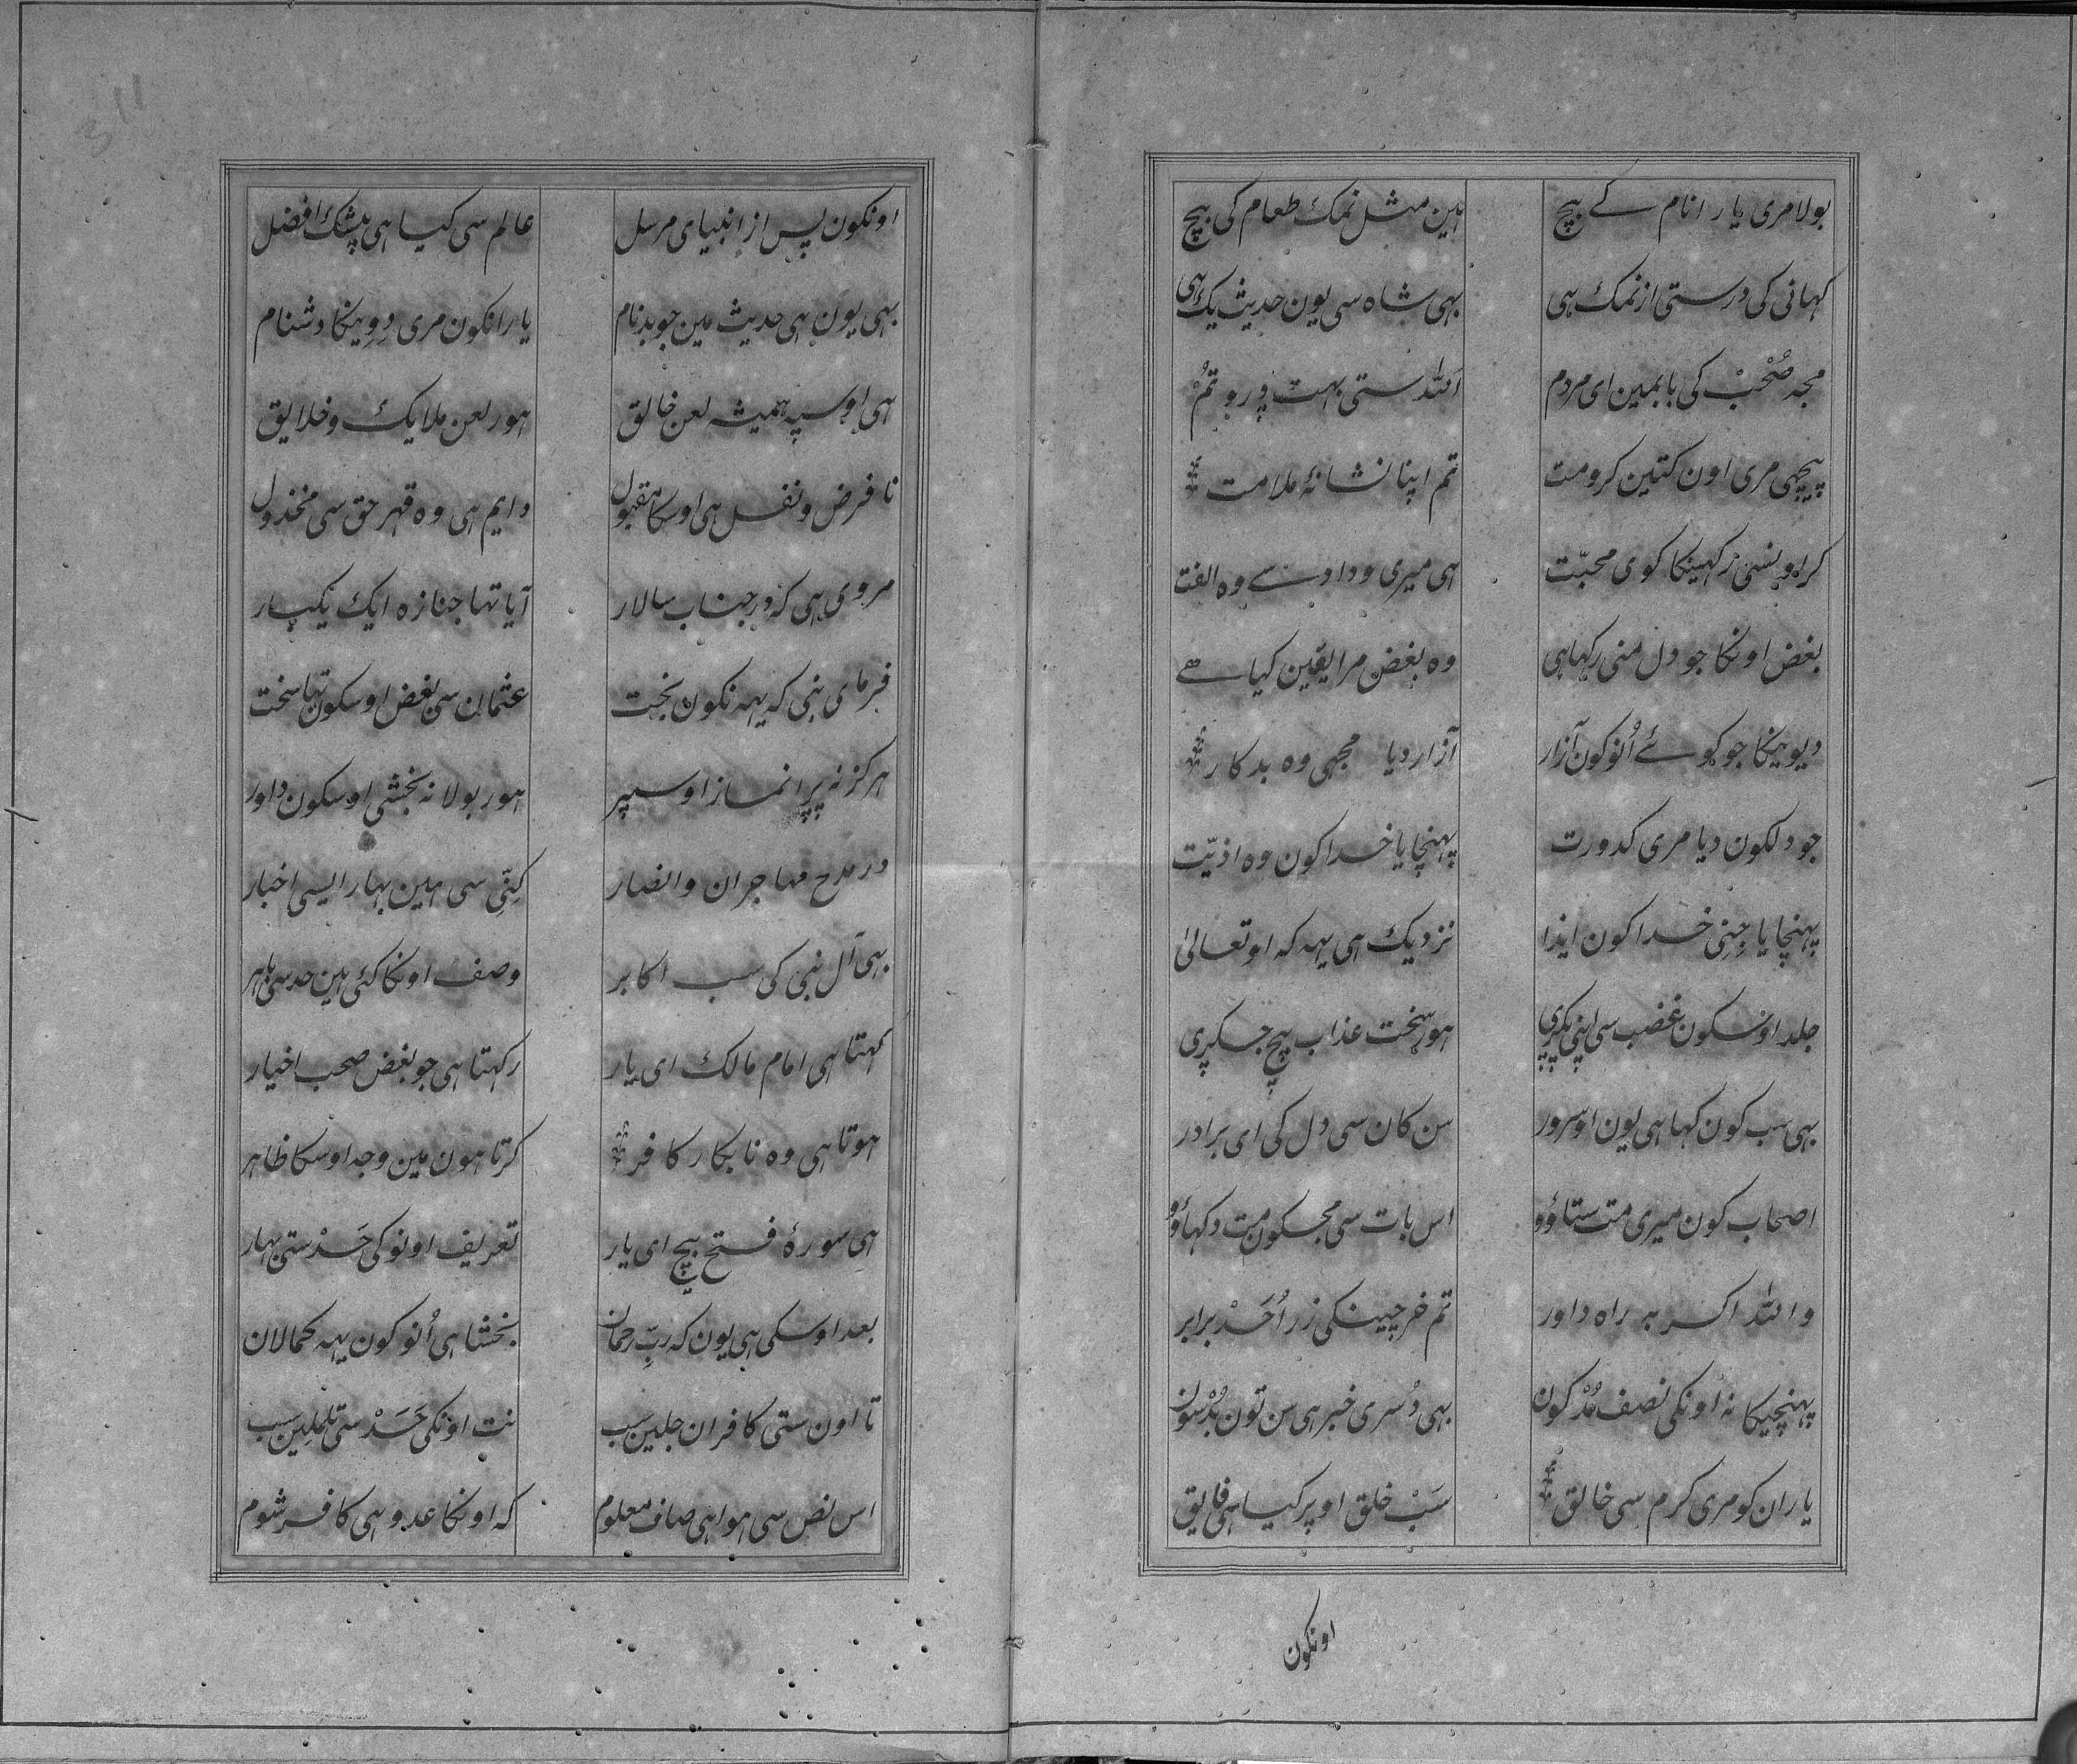 بولا مری یار انام کے بیچ ہین مثل نمک طعام کی بیچ
کہانی کی درستی از نمک ہی بہی شاہ سی یون حدیث یک ہی
مجہ صُحْبْ کی بابمین ای مردم اللہ ستی بہت ڈرو تمُْ
پیچھی مری اون کتین کرو مت تم اپنا نشانۂ ملامت
کر اونسی رکہینکا کوی محبّت ہی میری وداد سے وہ الفت
بغض اونکا جو دل منی رکہا ہی وہ بغض مرا یقین کیا ہے
دیویکا جو کوئے اُنوکون آزار آزار دیا مجہی وہ بدکار
جو دلکون دیا مری کدورت پہنچایا خدا کون وہ اذیّت
پہنچایا جِنِی خدا کون ایذا نزدیک ہی یہہ کہ او تعالیٰ
جلد اوسکون غضب سی اپنی پکڑی ہور سخت عذاب بیچ جکڑی
بہی سب کون کہا ہی یون او سرور سن کان سی دل کی ای برادر
اصحاب کون میری مت ستاؤو اس بات سی مجکون مت دکہاؤو
واللہ اگر بہ راہ داور تم خرچینکی زر اُحَدْ برابر
پہنچیکا نہ اونکی نصف مُدْ کون بہی دُسری خبر ہی سن تون
یاران کو مری کرم سی خالق سَبْ خلق اوپر کیا ہی فایق
اونکون
311
اونکون پس از انبیای مرسل عالم سی کیا ہی بیشک افضل
بہی یون ہی حدیث مین جو بدنام یارانکون مری دِویکا دشنام
ہی اوسپہ ہمیشہ لعن خالق ہور لعن ملایک و خلایق
نا فرض و نفل ہی اوسکا مقبول دایم ہی وہ قہر حق سی مخذول
مروی ہی کہ در جناب سالار آیا تہا جنازہ ایک یکبار
فرمای نبی کہ یہہ نکون بخت عثمان سی بغض اوسکون تہا سخت
ہرکز نہ پڑا نماز اوسپر ہور بولا نہ بخشی اوسکون داور
در مدح مہاجران و انصار کِنّی سی ہین بہار ایسی اخبار
بہی آل نبی کی سب اکابر وصف اونکا کئی ہین حد سی باہر
کہتا ہی امام مالک ای یار رکہتا ہی جو بغض صحب اخیار
ہوتا ہی وہ نابکار کافر کرتا ہون مین وجہ اوسکا ظاہر
ہی سورۂ فتح بیچ ای یار تعریف اونو کی حَدْ ستی بہار
بعد اوسکی ہی یون کہ ربِّ رحمان بخشا ہی اُنو کون یہہ کمالان
تا اون ستی کافران جلین سب نت اونکی حَسَدْ سی تلملین سب
اس نص سی ہوا ہی صاف معلوم کہ اونکا عدو ہی کافر شوم